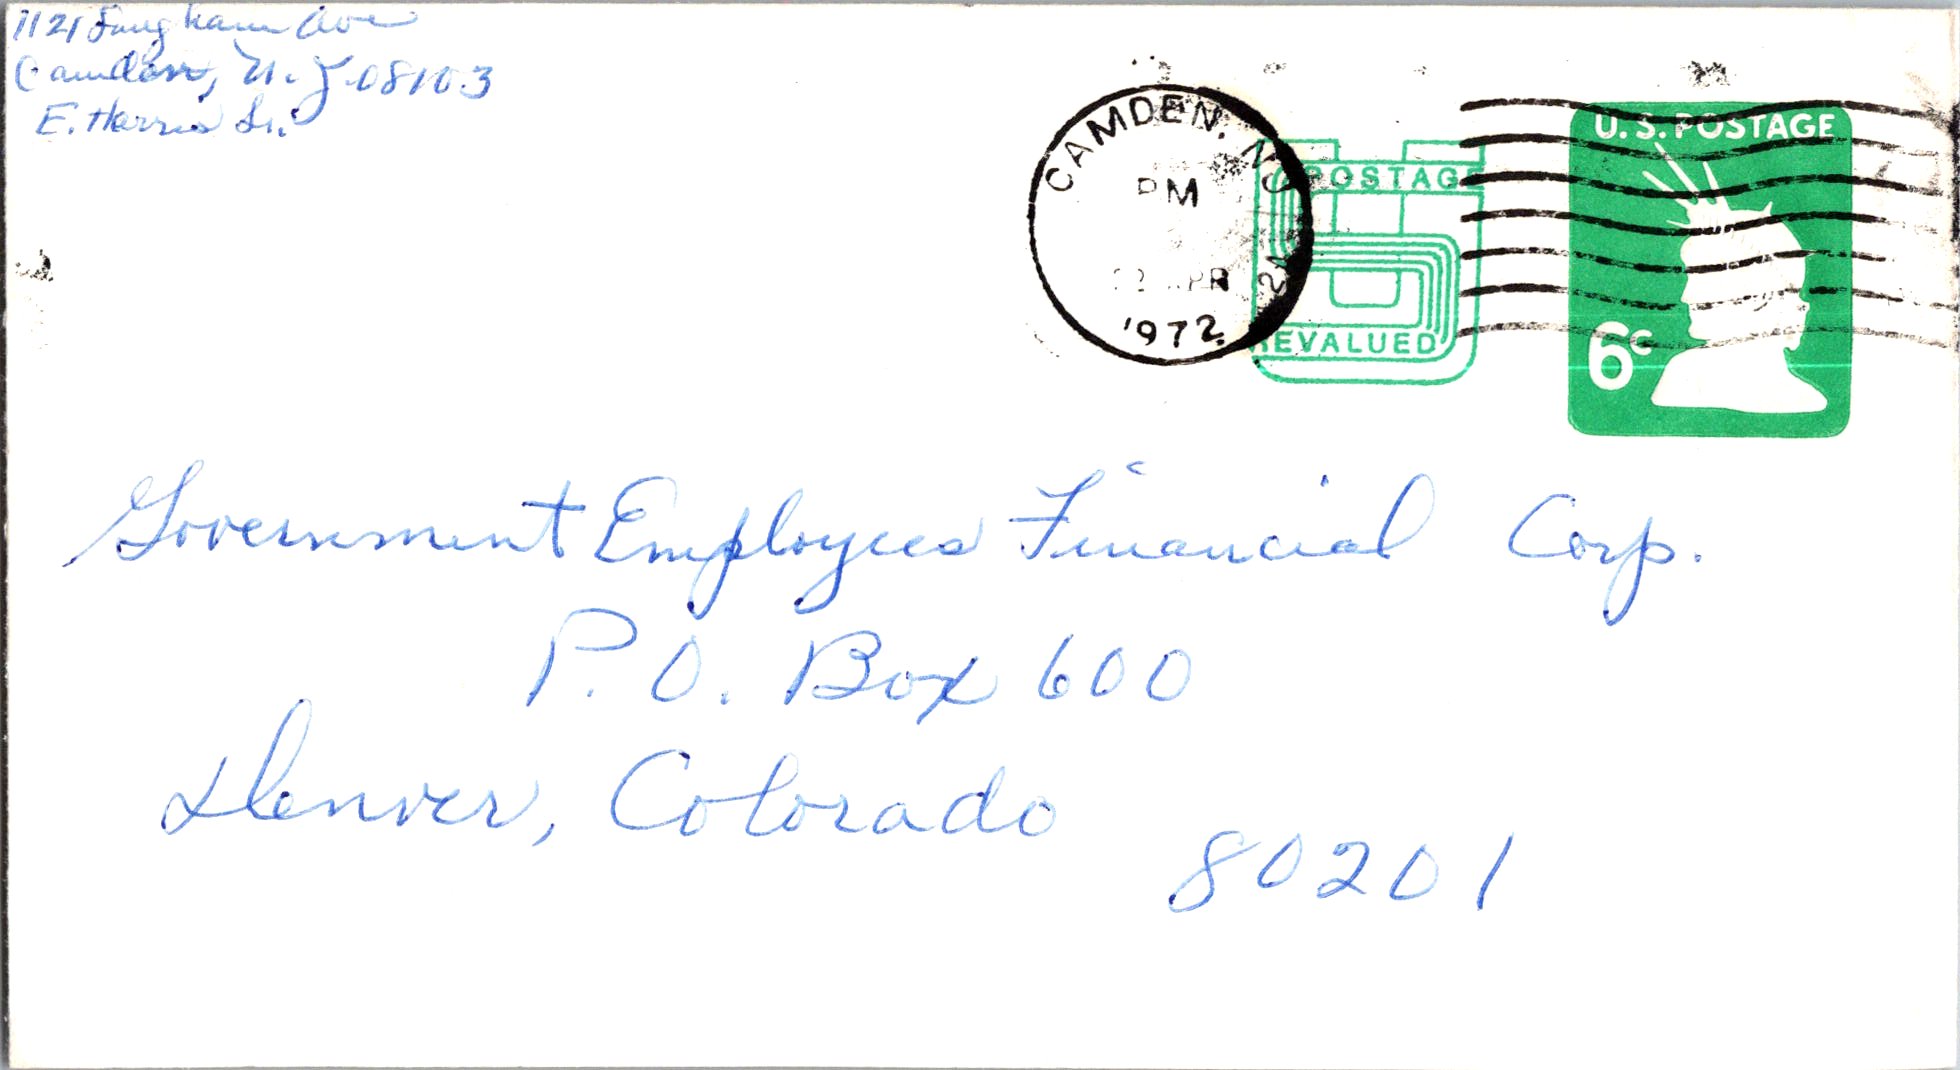 1121 Langham Ave
Camden, N. J. 08103
E. Harris Sr.
CAMDEN, NJ
PM
APR
1972
POSTAGE
REVALUED
U.S. POSTAGE
6c
Government Employees Financial Corp.
P. O. Box 600
Denver, Colorado
80201